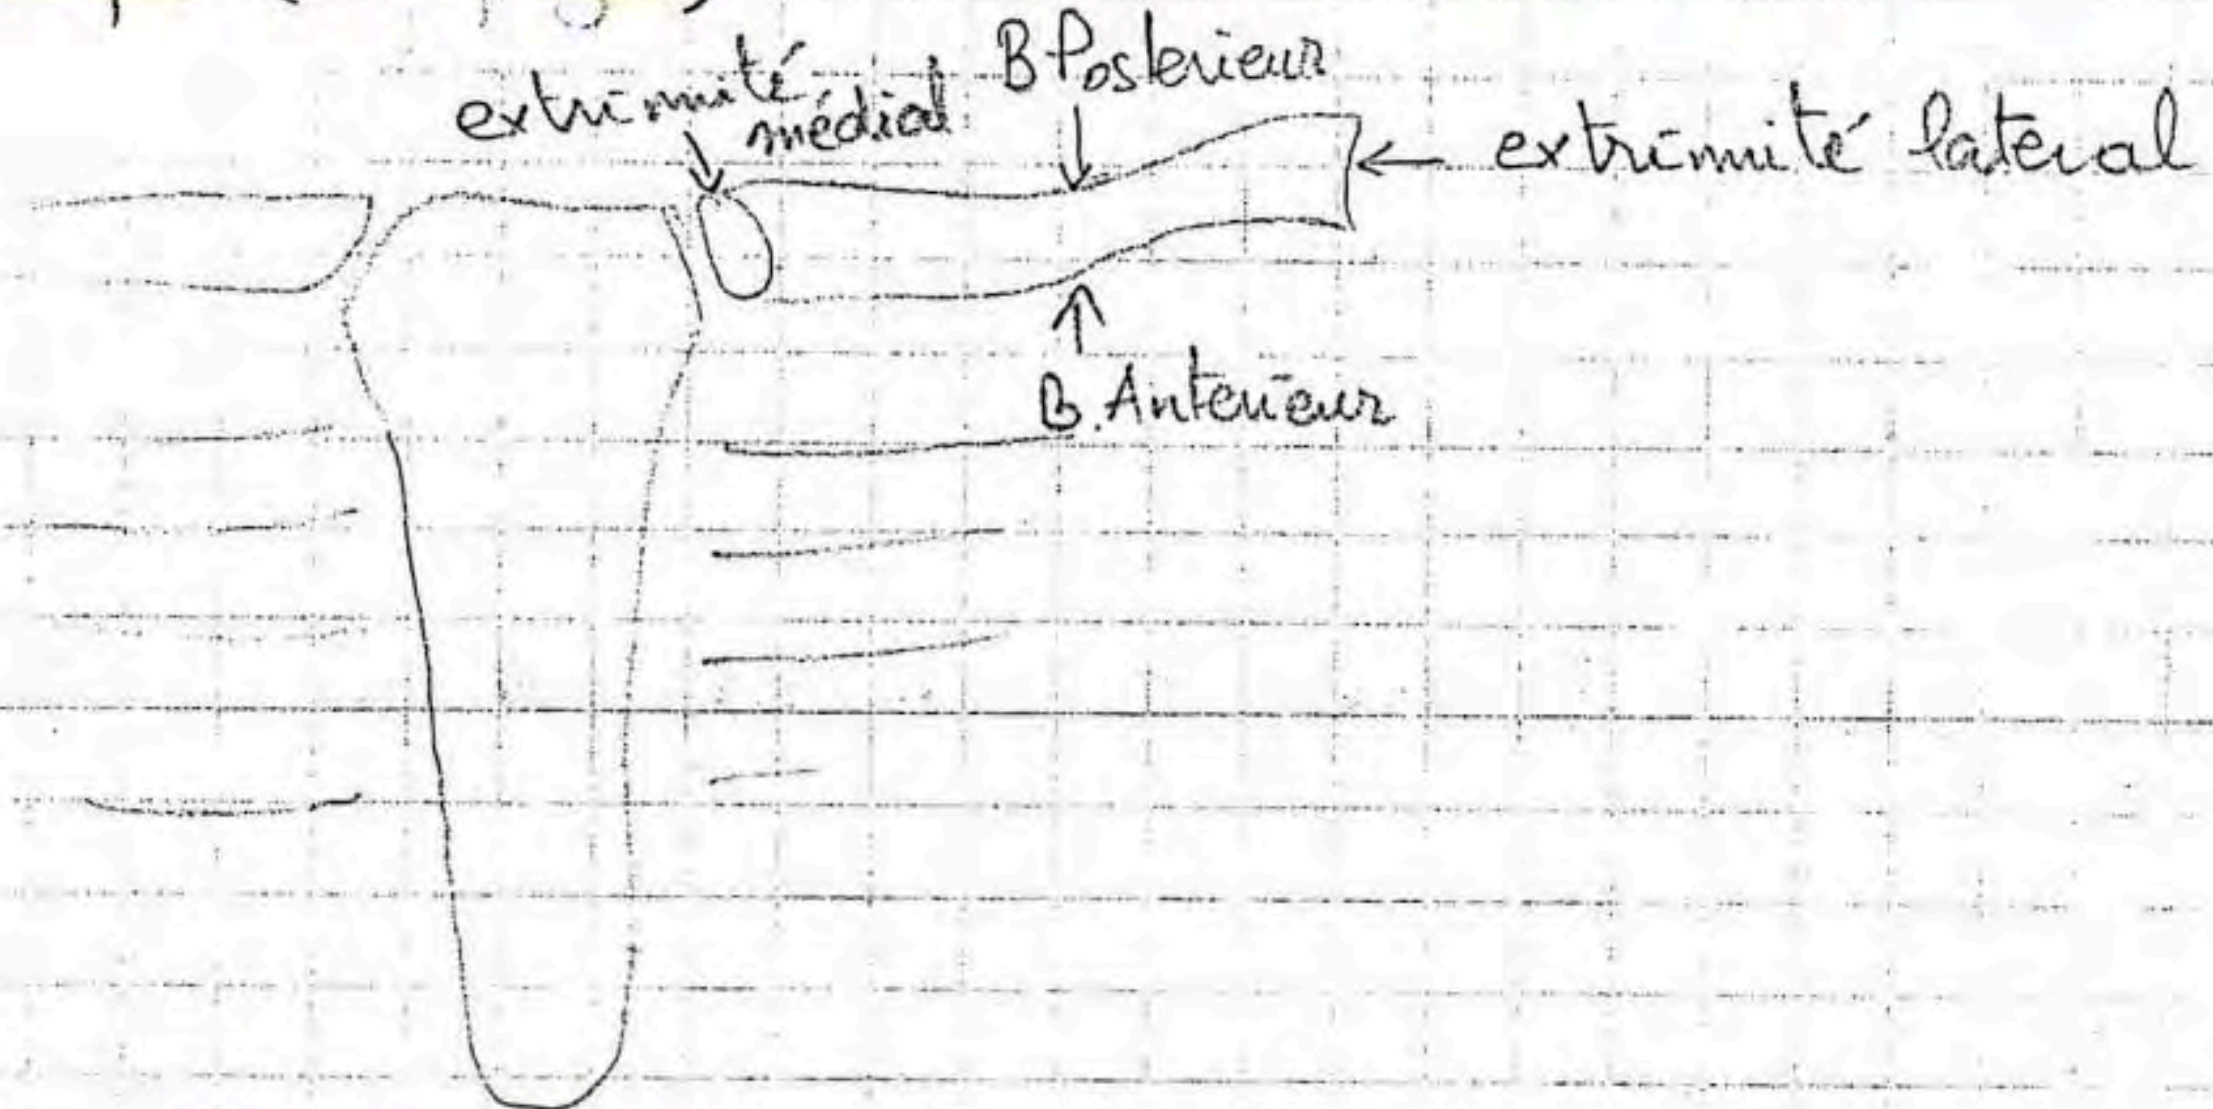 extrimité
médial
B Posterieur
extrimité lateral
B. Anterieur